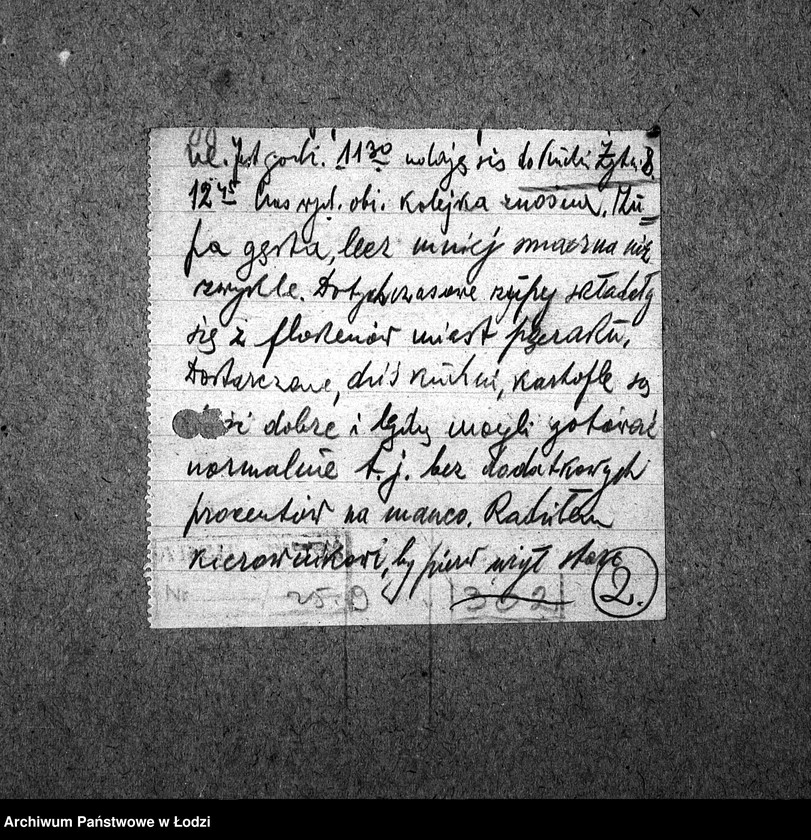 ul. Jest godz. 11³⁰ udaję się do Kuchni Żytn. 8.
12⁴⁵ Czas wyd. obi. kolejka znośna. Zu=
pa gęsta, lecz mniej smaczna niż
zwykle. Dotychczasowe zupy składały
się z flokenów miast pęczaku.
Dostarczone, dziś kuchni, kartofle są
dość dobre i będą mogli gotować
normalnie t. j. bez dodatkowych
procentów na manco. Radziłem
kierownikowi, by pierw użył stare
2.
Nr 25.9 302
Archiwum Państwowe w Łodzi